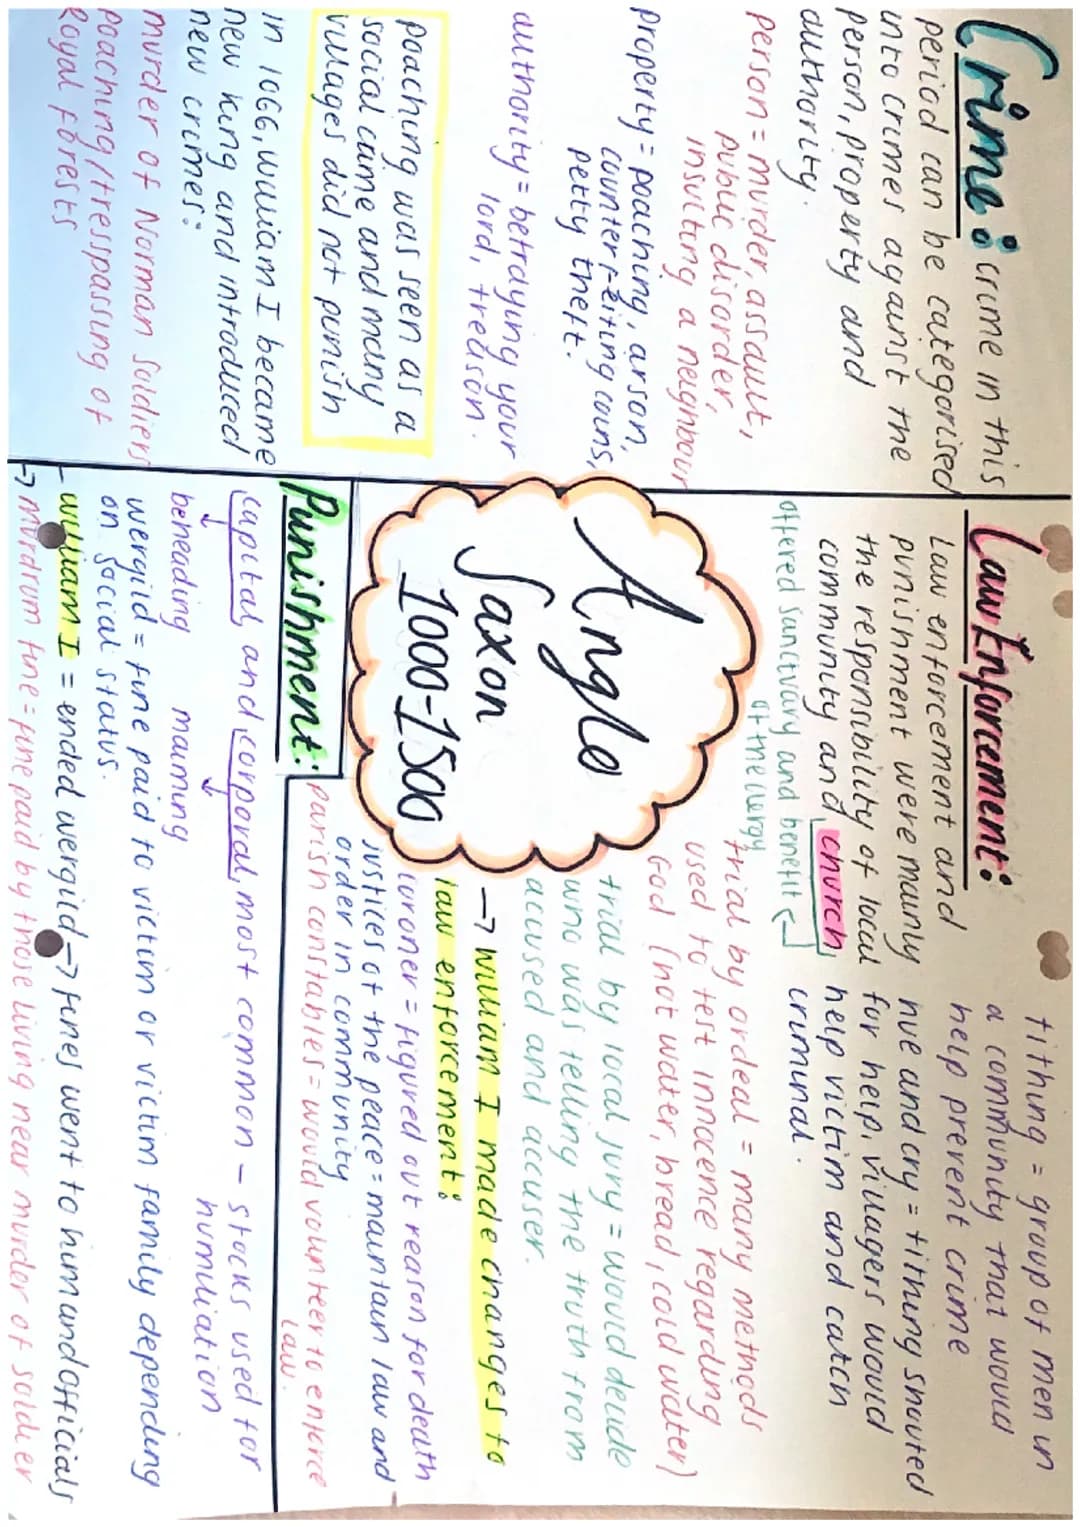 Crime: crime in this
period can be categorised
into crimes against the
person, property and
authority.
person = murder, assault,
public disorder,
insulting a neighbour
property = poaching, arson,
counterfeiting coins,
petty theft.
authority = betraying your
lord, treason.
poaching was seen as a
social crime and many
villages did not punish
in 1066, William I became
new king and introduced
new crimes:
murder of Norman soldiers
poaching/tresspassing of
Royal forests
Law Enforcement:
Law enforcement and
punishment were mainly
the responsibility of local
community and church
offered sanctuary and benefit
of the clergy
tithing = group of men in
a community that would
help prevent crime
hue and cry = tithing shouted
for help, villagers would
help victim and catch
criminal.
trial by ordeal = many methods
used to test innocence regarding
God (hot water, bread, cold water)
trial by local jury = would decide
who was telling the truth from
accused and accuser.
→ William I made changes to
law enforcement:
coroner = figured out reason for death
justices of the peace = maintain law and
order in community
parish constables = would volunteer to enforce
law.
Anglo
Saxon
1000-1500
Punishment:
capital and corporal, most common - stocks used for
humiliation
beheading maiming
wergild = fine paid to victim or victim family depending
on social status.
- William I = ended wergild → fines went to him and officials
→ murdrum fine = fine paid by those living near murder of soldier